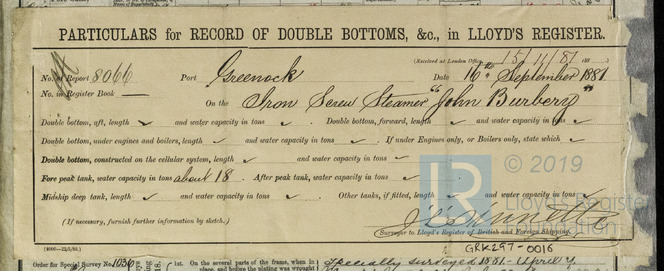 PARTICULARS for RECORD OF DOUBLE BOTTOMS, &c., in LLOYD'S REGISTER.
(Received at London Office 15/11/81 188 )
No. of Report 8066 Port Greenock Date 16th September 1881
No. in Register Book —
On the Iron Screw Steamer "John Burberry"
Double bottom, aft, length ✓ and water capacity in tons ✓ . Double bottom, forward, length ✓ and water capacity in tons ✓
Double bottom, under engines and boilers, length ✓ and water capacity in tons ✓ . If under Engines only, or Boilers only, state which ✓
Double bottom, constructed on the cellular system, length ✓ and water capacity in tons ✓
Fore peak tank, water capacity in tons about 18 . After peak tank, water capacity in tons ✓
Midship deep tank, length ✓ and water capacity in tons ✓ Other tanks, if fitted, length ✓ and water capacity in tons ✓
(If necessary, furnish further information by sketch.)
Surveyor to Lloyd's Register of British and Foreign Shipping.
GRK297-0016
LR © 2019
Lloyd's Register
Foundation
Order for Special Survey No. 1036
1st. On the several parts of the frame, when in
place, and before the plating was wrought
Specially surveyed 1881 - April 4